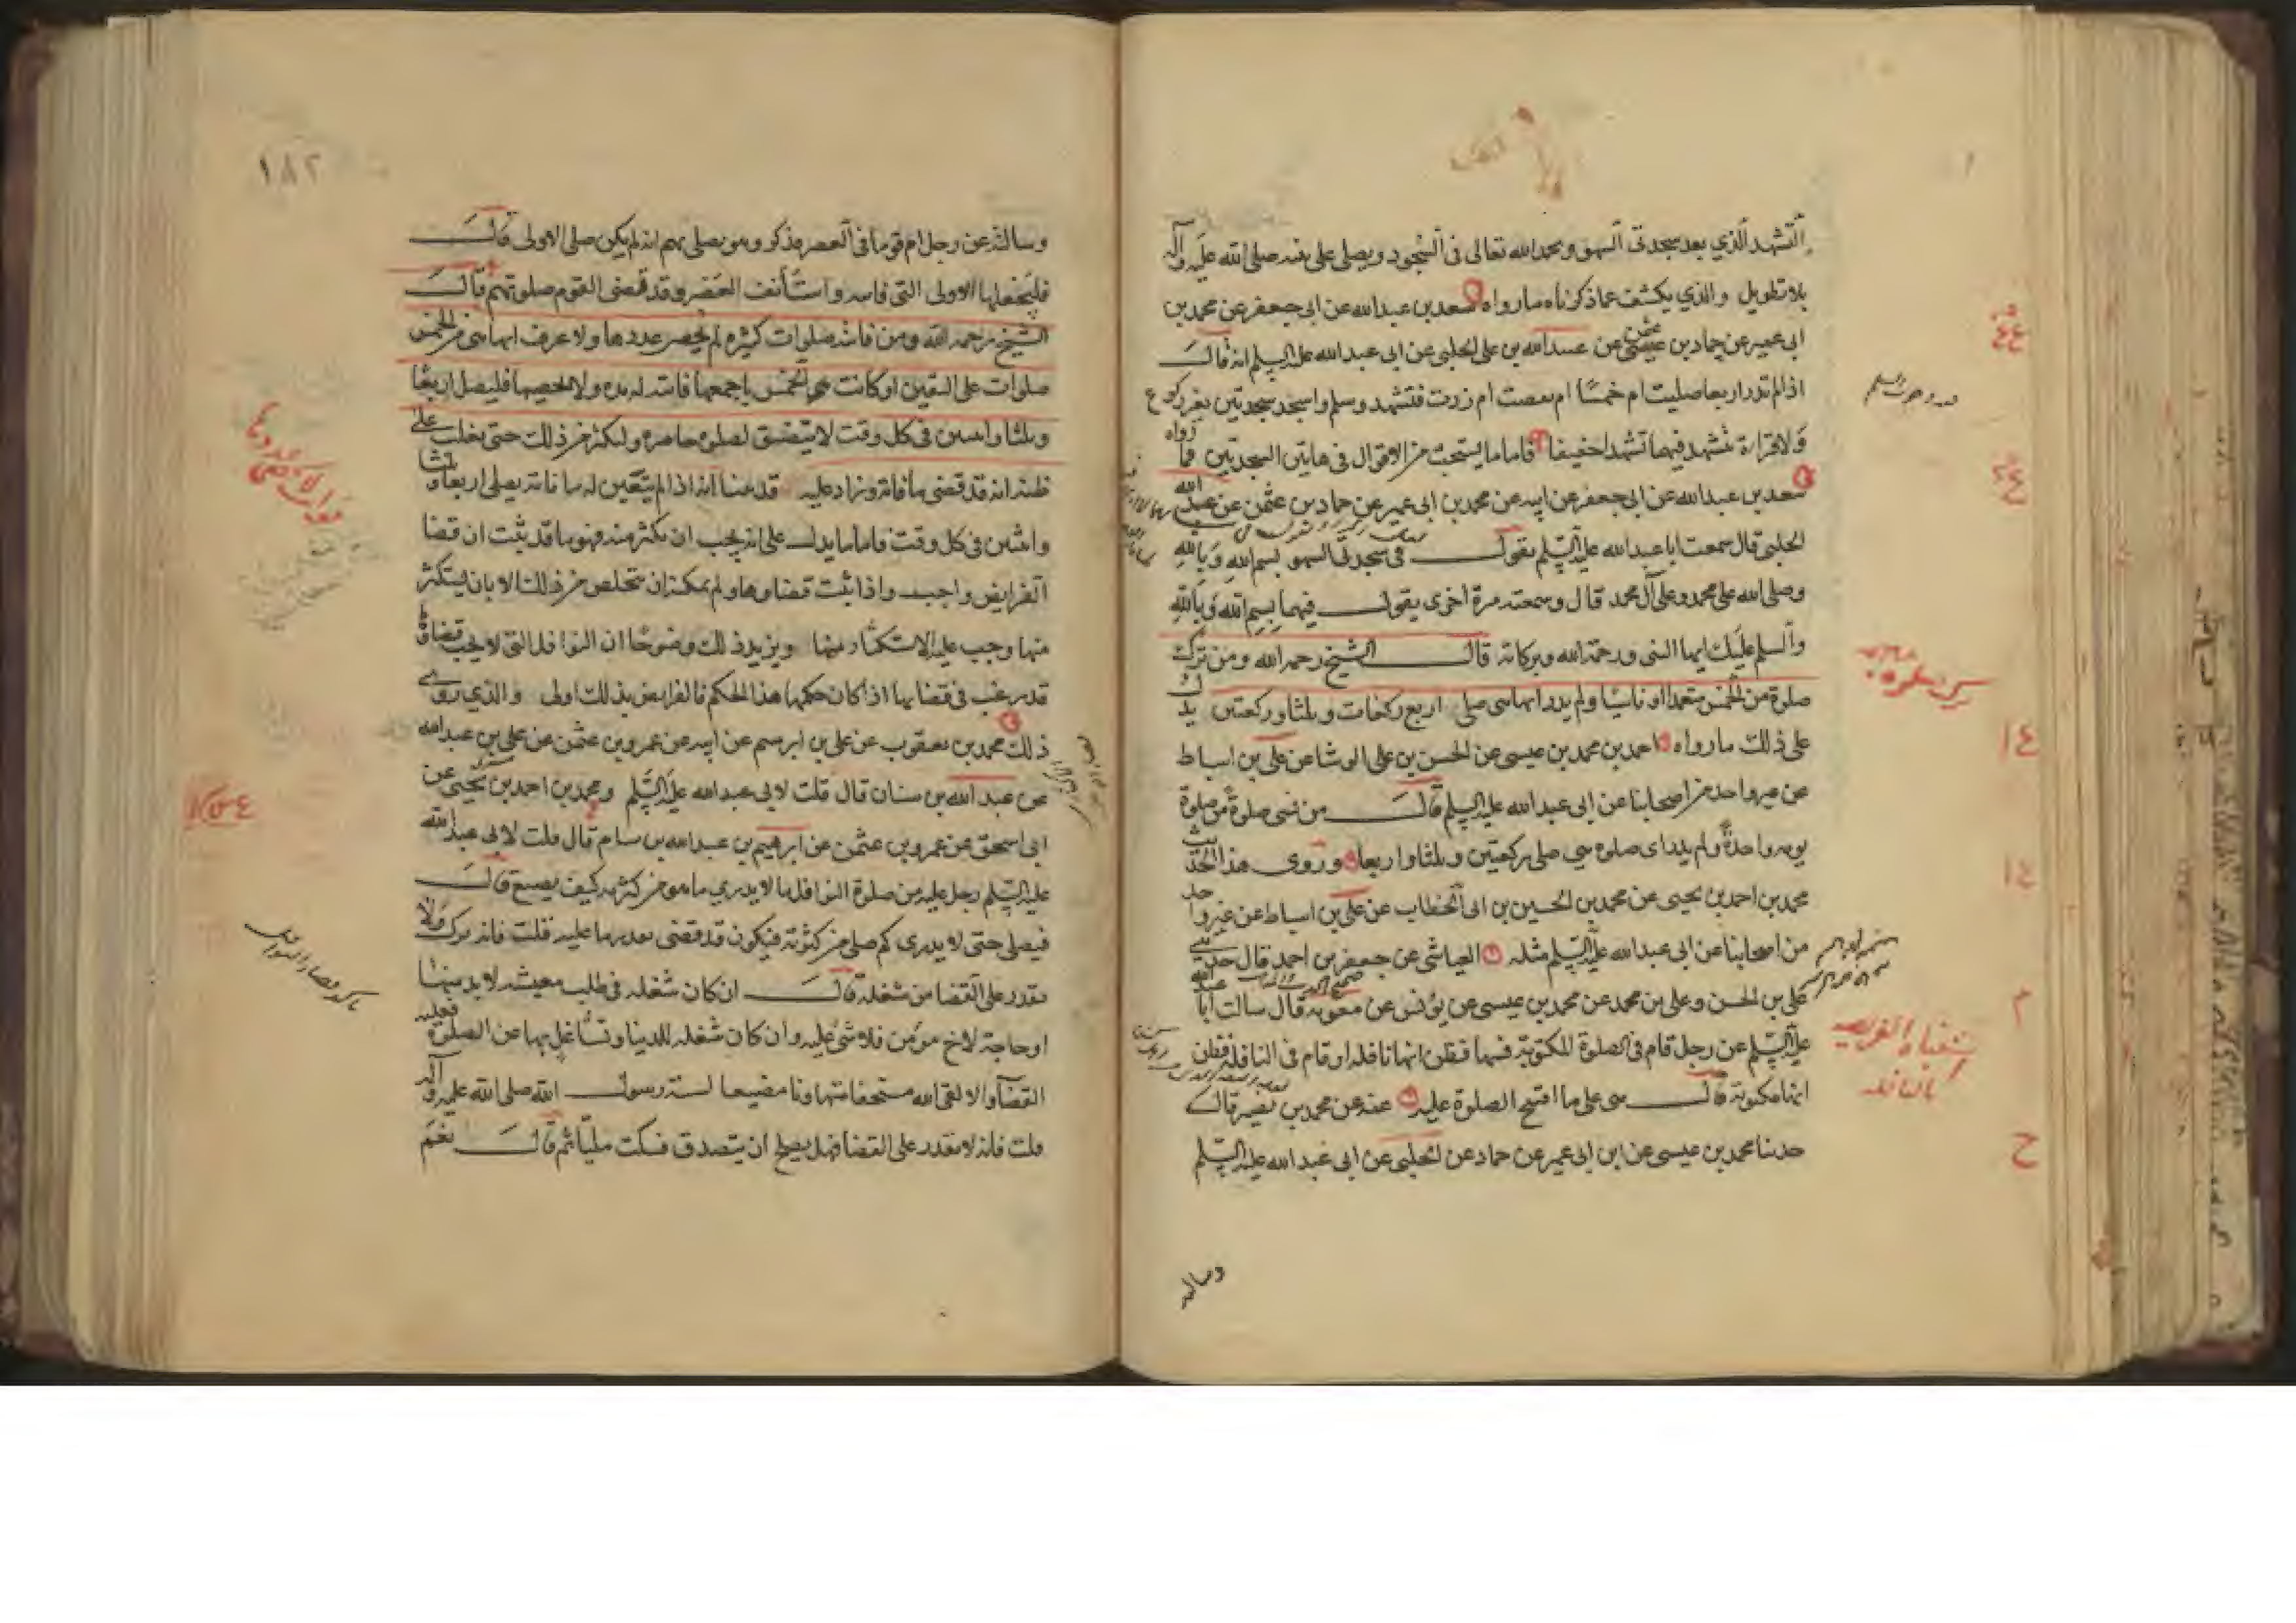 التشهد الذي بعد سجدتي السهو ويحمد الله تعالى في السجود ويصلي على نبيه صلى الله عليه وآله
بلا تطويل والذي يكشف عما ذكرناه ما رواه سعد بن عبدالله عن ابى جعفر عن محمد بن
ابى عمير عن حماد بن عثمن عن عبيدالله بن على الحلبى عن ابى عبدالله عليه السلم انه قال
اذا لم تدر اربعا صليت ام خمسًا ام نقصت ام زدت فتشهد وسلم واسجد سجدتين بغير ركوع
ولا قراءة تتشهد فيهما تشهدا خفيفا فاما ما يستحب من الاقوال فى هاتين السجدتين فما رواه
سعد بن عبدالله عن ابى جعفر عن ابيه عن محمد بن ابى عمير عن حماد بن عثمن عن عبيدالله
الحلبى قال سمعت ابا عبدالله عليه السلم يقول فى سجدتى السهو بسم الله وبالله
وصلى الله على محمد وعلى آل محمد قال وسمعته مرة اخرى يقول فيهما بسم الله وبالله
والسلم عليك ايها النبى ورحمة الله وبركاته قال الشيخ رحمه الله ومن ترك
صلوة من الخمس متعمدا او ناسيا ولم يدر ايها هى صلى اربع ركعات وثلثا وركعتين يدل
على ذلك ما رواه احمد بن محمد بن عيسى عن الحسن بن على الوشا عن على بن اسباط
عن غير واحد من اصحابنا عن ابى عبدالله عليه السلم قال من نسى صلوة من صلوة
يومه واحدة ولم يدر اى صلوة هى صلى ركعتين وثلثا واربعا وروى هذا الحديث
محمد بن احمد بن يحيى عن محمد بن الحسين بن ابى الخطاب عن على بن اسباط عن غير واحد
من اصحابنا عن ابى عبدالله عليه السلم مثله العياشى عن جعفر بن احمد قال حدثنى
على بن الحسن وعلى بن محمد عن محمد بن عيسى عن يونس عن معوية قال سالت ابا عبدالله
عليه السلم عن رجل قام فى الصلوة المكتوبة فسها فظن انها نافلة او قام فى النافلة فظن
انها مكتوبة قال هى على ما افتتح الصلوة عليه عنه عن محمد بن نصير قال
حدثنا محمد بن عيسى عن ابن ابى عمير عن حماد عن الحلبى عن ابى عبدالله عليه السلم
وسالته
١٨٢
وسالته عن رجل ام قوما فى العصر فذكر وهو يصلى بهم انه لم يكن صلى الاولى قال
فليجعلها الاولى التى فاتته واستأنف العصر وقد قضى القوم صلوتهم قال
الشيخ رحمه الله ومن فاتته صلوات كثيرة لم يحصر عددها ولا عرف ايها هى من الخمس
صلوات على التعيين او كانت هى الخمس باجمعها فاتته له مدة ولا يحصيها فليصل اربعًا
وثلثا واثنين فى كل وقت لا يتضيق لصلوة حاضرة وليكثر من ذلك حتى يغلب على
ظنه انه قد قضى ما فاته وزاد عليه قد بينا انه اذا لم يتعين له ما فاته يصلى اربعا وثلثا
واثنين فى كل وقت فاما ما يدل على انه يجب ان يكثر منه فهو ما قد ثبت ان قضا
الفرايض واجب واذا ثبت قضاوها ولم يمكنه ان يتخلص من ذلك الا بان يستكثر
منها وجب عليه الاستكثار منها ويزيد ذلك وضوحًا ان النوافل التى لا يجب قضاؤها
قد رغب فى قضايها اذا كان حكمها هذا الحكم فالفرايض بذلك اولى والذي روى
ذلك محمد بن يعقوب عن على بن ابرهيم عن ابيه عن عمرو بن عثمن عن على بن عبدالله
عن عبدالله بن سنان قال قلت لابى عبدالله عليه السلم ومحمد بن احمد بن يحيى عن
ابى اسحق عن عمرو بن عثمن عن ابرهيم بن عبدالله بن سام قال قلت لابى عبدالله
عليه السلم رجل عليه من صلوة النوافل ما لا يدري ما هو من كثرته كيف يصنع قال
فيصلى حتى لا يدرى كم صلى من كثرته فيكون قد قضى بقدر ما عليه قلت فانه ترك ولا
يقدر على القضا من شغله قال ان كان شغله فى طلب معيشة لا بد منها
او حاجة لاخ مؤمن فلا شئ عليه وان كان شغله للدنيا وتشاغل بها عن الصلوة فعليه
القضآ والا لقى الله مستخفا متهاونا مضيعا لسنة رسول الله صلى الله عليه وآله
قلت فانه لا يقدر على القضا فهل يصلح ان يتصدق فسكت مليّا ثم قال نعم